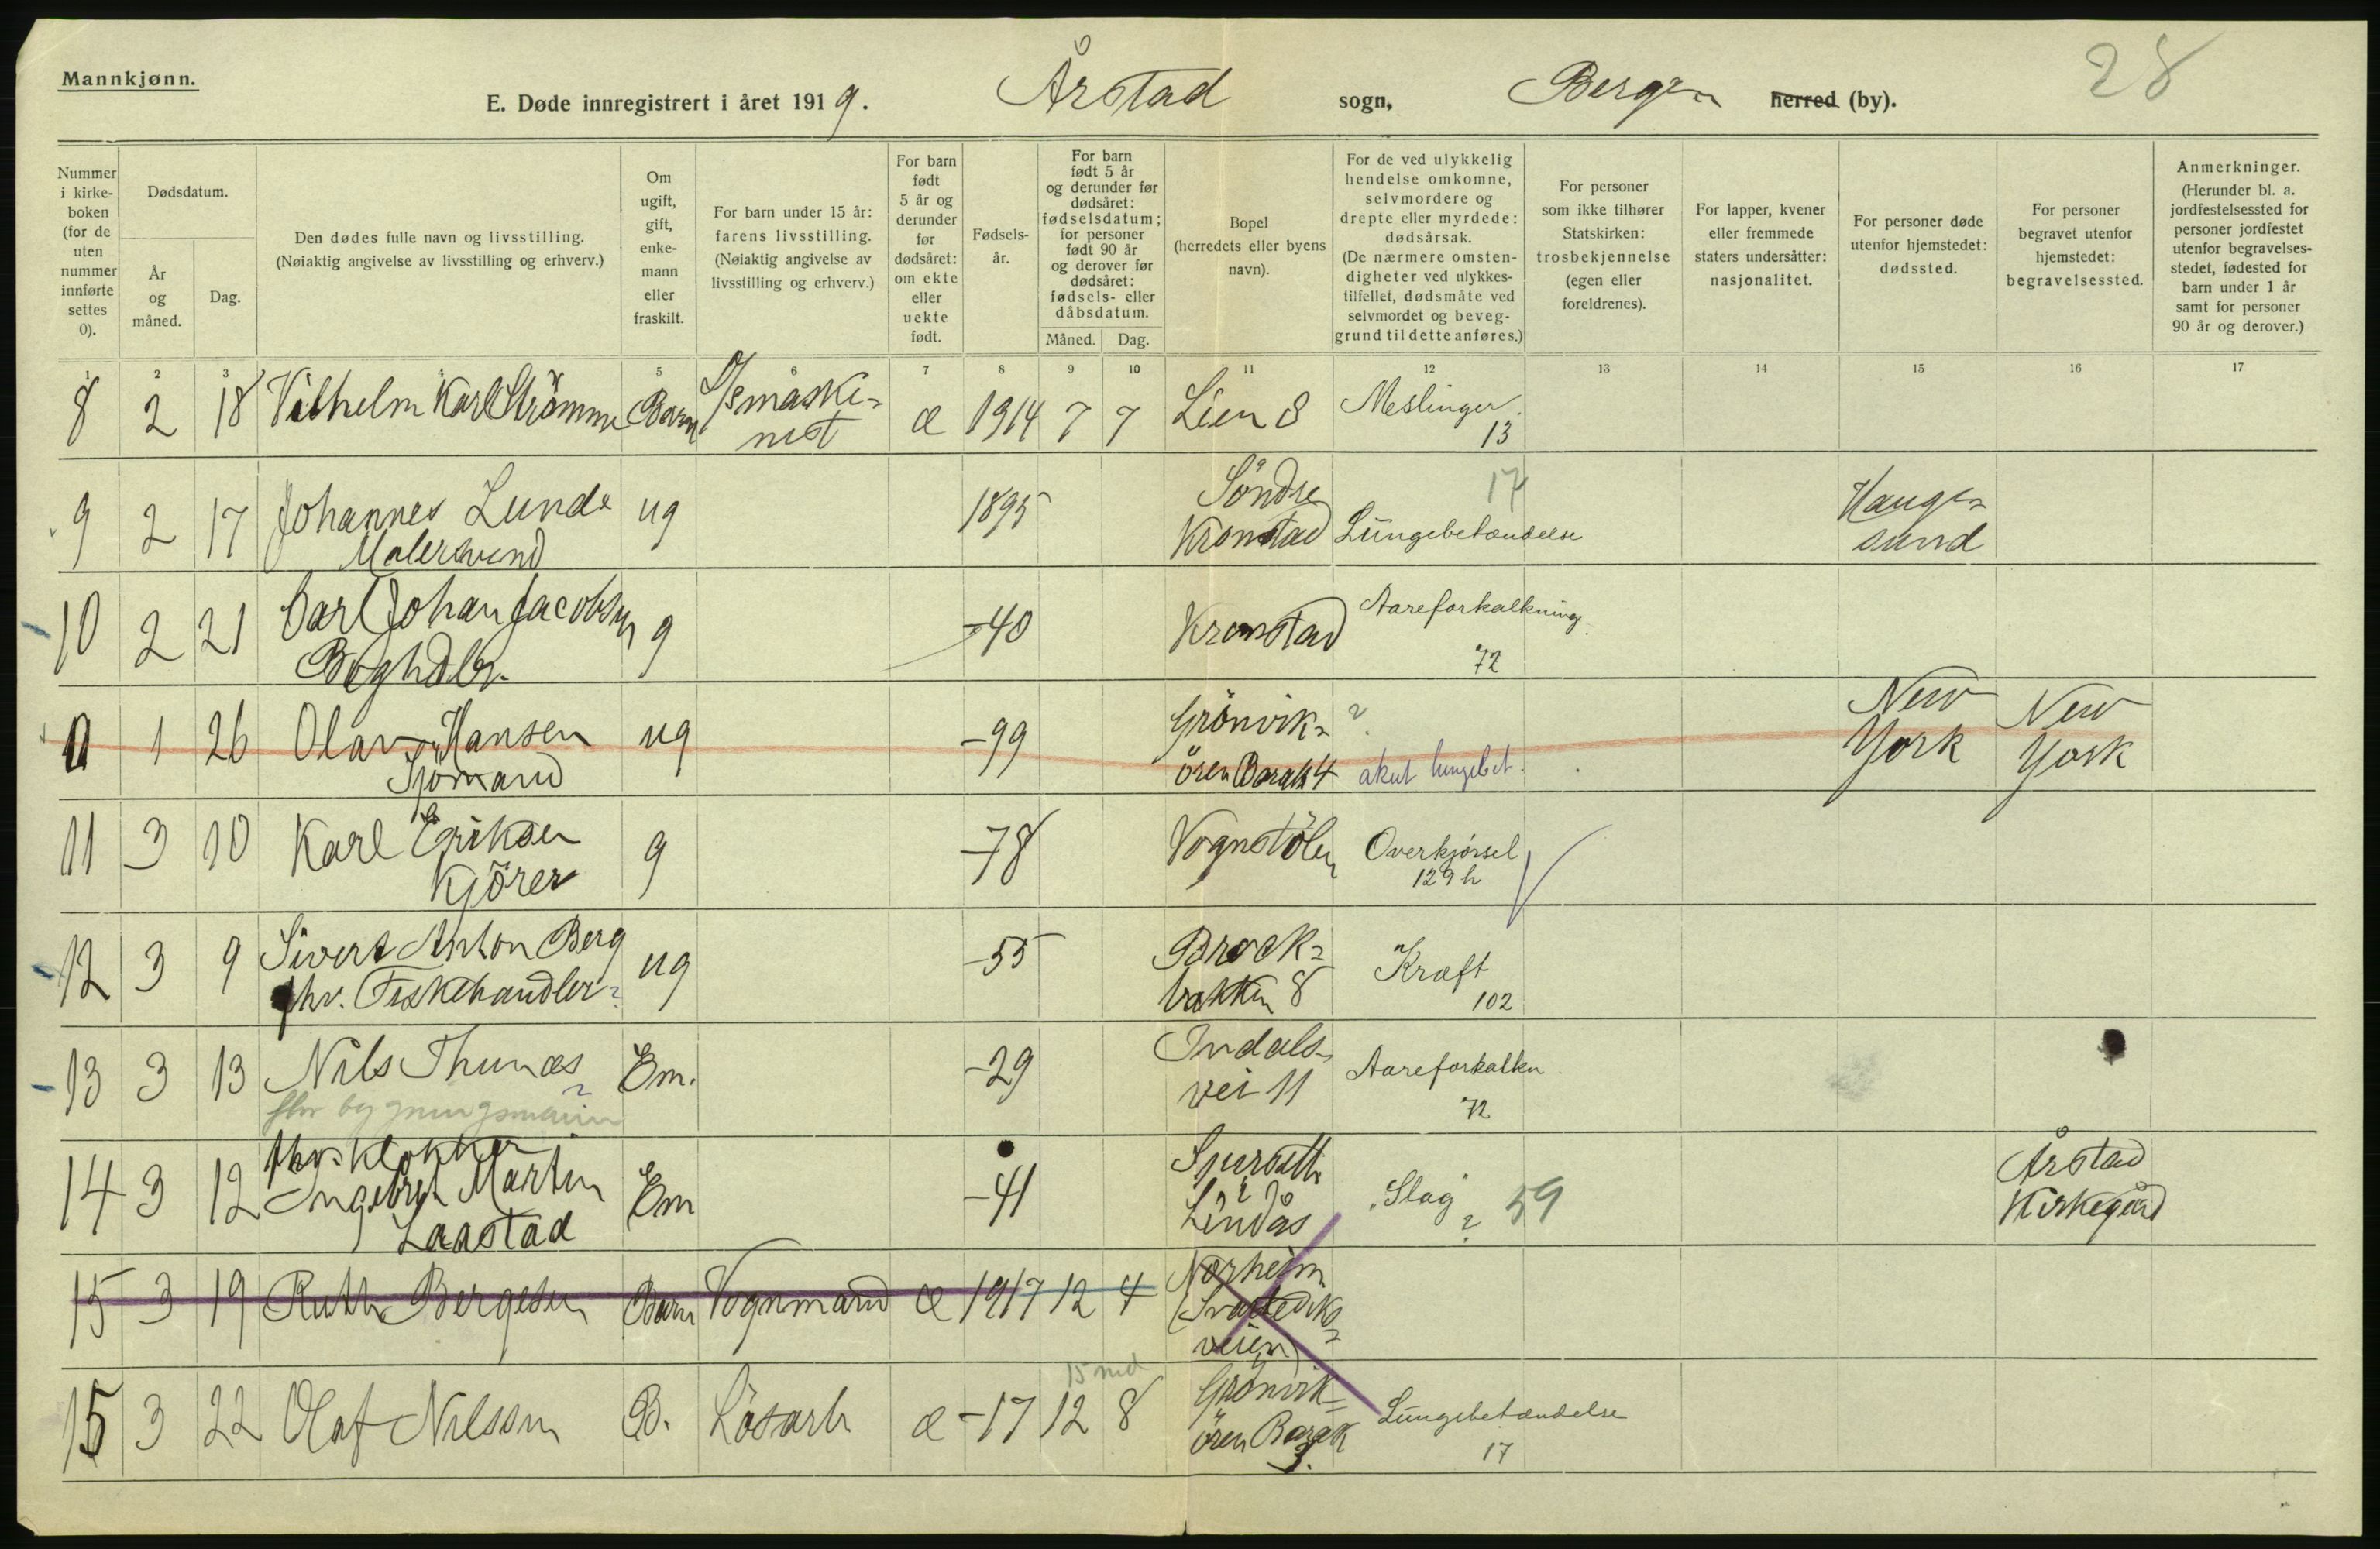 Mannkjønn.
E. Døde innregistrert i året 1919. Årstad sogn, Bergen herred (by). 28
Nummer i kirkeboken (for de uten nummer innførte settes 0).
Dødsdatum.
År og måned.
Dag.
Den dødes fulle navn og livsstilling.
(Nøiaktig angivelse av livsstilling og erhverv.)
Om ugift, gift, enkemann eller fraskilt.
For barn under 15 år: farens livsstilling. (Nøiaktig angivelse av livsstilling og erhverv.)
For barn født 5 år og derunder før dødsåret: om ekte eller uekte født.
Fødselsår.
For barn født 5 år og derunder før dødsåret: fødselsdatum; for personer født 90 år og derover før dødsåret: fødsels- eller dåbsdatum.
Måned. Dag.
Bopel (herredets eller byens navn).
For de ved ulykkelig hendelse omkomne, selvmordere og drepte eller myrdede: dødsårsak. (De nærmere omstendigheter ved ulykkestilfellet, dødsmåte ved selvmordet og beveggrund til dette anføres.)
For personer som ikke tilhører Statskirken: trosbekjennelse (egen eller foreldrenes).
For lapper, kvener eller fremmede staters undersåtter: nasjonalitet.
For personer døde utenfor hjemstedet: dødssted.
For personer begravet utenfor hjemstedet: begravelsessted.
Anmerkninger. (Herunder bl. a. jordfestelsessted for personer jordfestet utenfor begravelsesstedet, fødested for barn under 1 år samt for personer 90 år og derover.)
1 2 3 5 6 7 8 9 10 11 12 13 14 15 16 17
8 2 18 Vilhelm Karl Strömme Barn S/s maski-
nist æ 1914 7 7 Lien 8 Meslinger.
13
9 2 17 Johannes Lunde ug 1895 Söndre 17 Hauge-
Malersvend Kronstad Lungebetændelse sund
10 2 21 Carl Johan Jacobsen g -40 Kronstad Aareforkalkning.
Boghdlr. 72
0 1 26 Olav Hansen ug -99 Grönvik- ? New York New York
Sjömand ören Barak 4 akut lungebet.
11 3 10 Karl Eriksen g -78 Vognstölen Overkjørsel
Kjörer 129 h
12 3 9 Sivert Anton Berg ug -55 Brock- Kræft
fhv. Fiskehandler ? bakken 8 102
13 3 13 Nils Thunæs Em. -29 Indals- Aareforkalkn
fhv bygningsmann ? vei 11 72
fhv. klokker
14 3 12 Ingebret Martin Em -41 Lindås Slag ? 59 Årstad
Laastad Kirkegård
15 3 19 Ruth Bergesen Barn Vognmand æ 1917 12 4 Norheim
(Svartediks-
veien)
15 md
15 3 22 Olaf Nilssen B. Lösarb æ -17 12 8 Grönvik- Lungebetændelse
ören Barak 3. 17